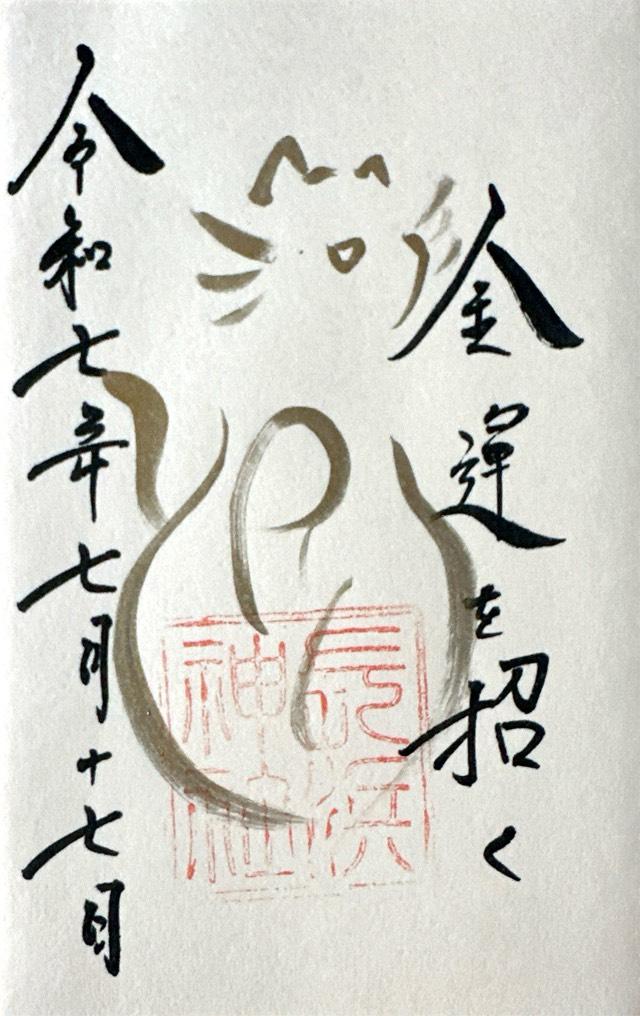 金運を招く
長浜
神社
令和七年七月十七日